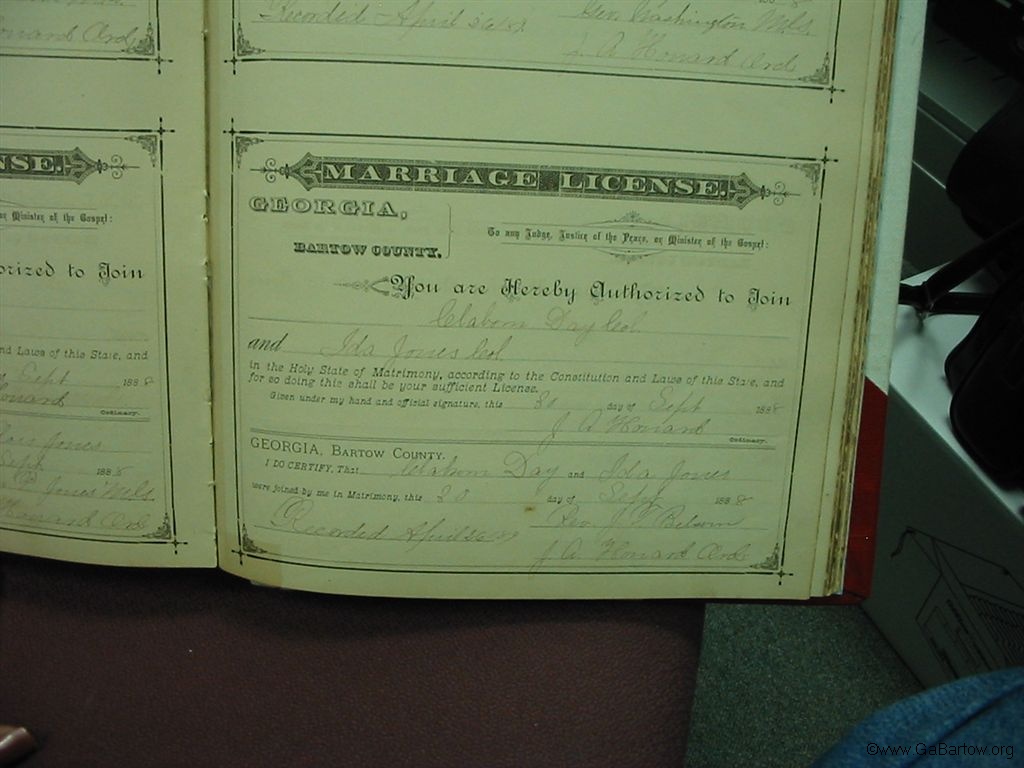 Recorded April 26/89
Geo. Washington M.G.
J. A. Howard Ord
Howard Ord
NSE.
or Minister of the Gospel:
orized to Join
and Laws of this State, and
Sept 1888
Howard
Ordinary.
Jones
Sept 1888
Jones
Howard Ord
MARRIAGE LICENSE.
GEORGIA,
BARTOW COUNTY.
To any Judge, Justice of the Peace, or Minister of the Gospel:
You are Hereby Authorized to Join
Claborn Day Col
and Ida Jones Col
in the Holy State of Matrimony, according to the Constitution and Laws of this State, and
for so doing this shall be your sufficient License.
Given under my hand and official signature, this day of Sept 1888
J. A. Howard
Ordinary.
GEORGIA, BARTOW COUNTY.
I DO CERTIFY, That Claborn Day and Ida Jones
were joined by me in Matrimony, this day of Sept 1888
Rev. J.
Recorded April 26/89
J. A. Howard Ord
©www.GaBartow.org